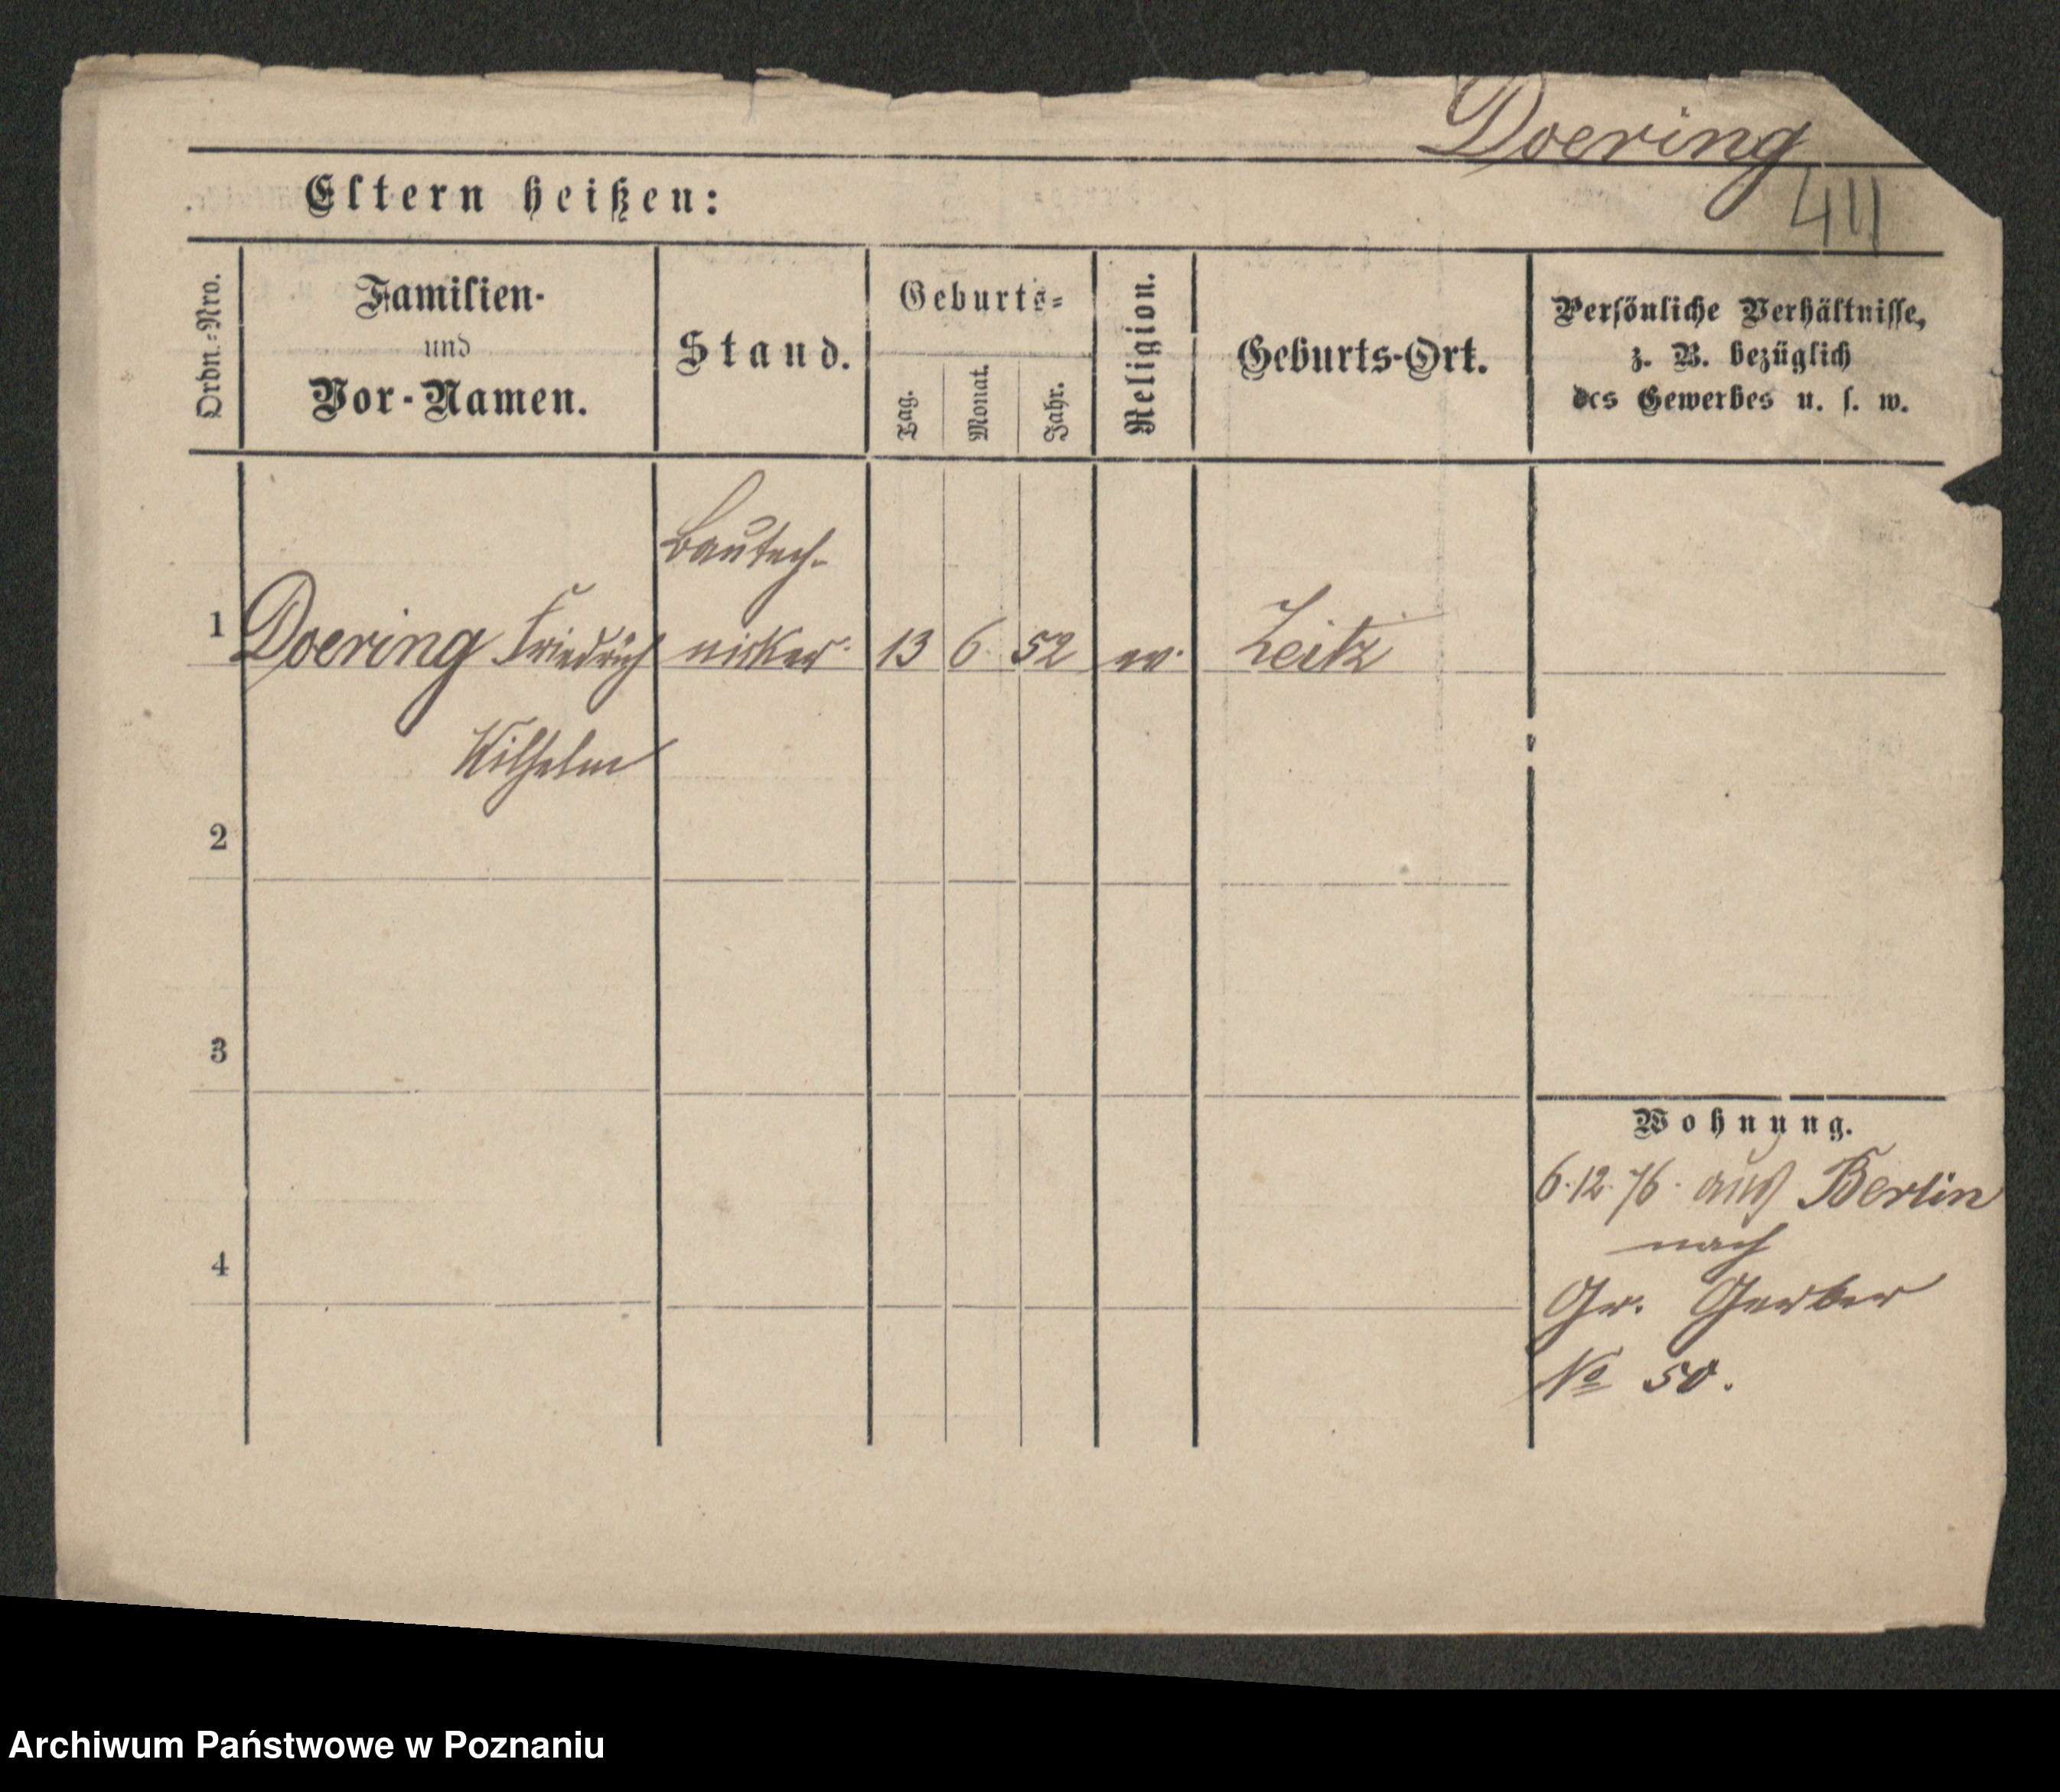 Doering
411
Eltern heißen:
Ordn.-Nro.
Familien-
und
Vor-Namen.
Stand.
Geburts-
Tag.
Monat.
Jahr.
Religion.
Geburts-Ort.
Persönliche Verhältnisse,
z. B. bezüglich
des Gewerbes u. s. w.
Bautech-
1 Doering Friedrich nicker 13 6 52 ev. Zeitz
Wilhelm
2
3
Wohnung.
6.12.76. aus Berlin
nach
4
Gr. Gerber
No 50.
Archiwum Państwowe w Poznaniu